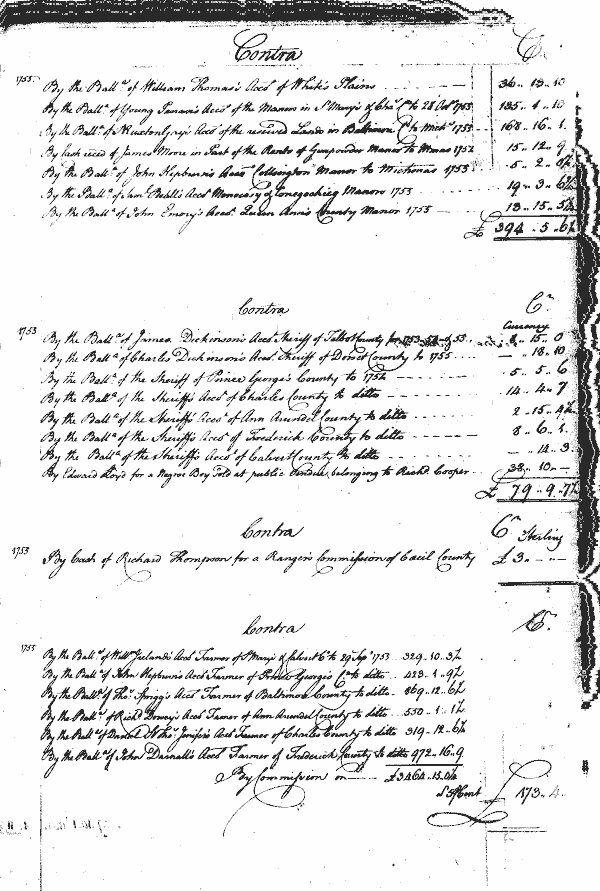 Contra Cr.
1753 By the Ball.ce of William Thomas's Acct of White Plains 36 .. 13 .. 10
By the Ball.ce of Young Parran's Acct of the Manors in St Mary's & Chas Co to 28 Octr 1753 135 .. 4 .. 10
By the Ball.ce of Acct of the reserved Lands in Baltimore Co to Michs 1753 168 .. 16 .. 1
By Cash reced of James Moore in Part of the Rents of Gunpowder Manor to 1752 15 .. 12 .. 9
By the Ball.ce of John Hepburn's Acct Collington Manor to Michmas 1753 5 .. 2 .. 0½
By the Ball.ce of Saml Beall's Acct Monocacy & Conegochieg Manors 1753 19 .. 3 .. 6½
By the Ball.ce of John Emory's Acct Queen Ann's County Manor 1753 13 .. 15 .. 5½
£ 394 .. 5 .. 6½
Contra Cr.
Currency
1753 By the Ball.ce of James Dickinson's Acct Sheriff of Talbot County for 15 .. 0
By the Ball.ce of Charles Dickinson's Acct Sheriff of Dorset County to 1755 — .. 18 .. 10
By the Ball.ce of the Sheriff of Prince George's County to 1752 5 .. 5 .. 6
By the Ball.ce of the Sheriff's Acct of Charles County to ditto 14 .. 4 .. 7
By the Ball.ce of the Sheriff's Acct of Ann Arundel County to ditto 2 .. 15 .. 9½
By the Ball.ce of the Sheriff's Acct of Frederick County to ditto 8 .. 6 .. 1
By the Ball.ce of the Sheriff's Acct of Calvert County to ditto — .. 14 .. 3
By Edward Lloyd for a Negro Boy Sold at public Vendue, belonging to Richd Cooper 38 .. 10 .. —
£ 79 .. 9 .. 7½
Contra Cr. Sterling
1753 By Cash of Richard Thompson for a Ranger's Commission of Cecil County £ 3 .. — .. —
Contra Cr.
1753 By the Ball.ce of Willm Ireland's Acct Farmer of St Mary's & Calvert Co to 29 Sepr 1753 329 .. 10 .. 3½
By the Ball.ce of John Hepburn's Acct Farmer of Prince George's Co to ditto 423 .. 1 .. 9½
By the Ball.ce of Thos Sprigg's Acct Farmer of Baltimore County to ditto 869 .. 12 .. 6½
By the Ball.ce of Richd Dorsey's Acct Farmer of Ann Arundel County to ditto 550 .. 1 .. 1½
By the Ball.ce of Daniel of Thos Jenifer's Acct Farmer of Charles County to ditto 319 .. 12 .. 6½
By the Ball.ce of John Darnall's Acct Farmer of Frederick County to ditto 972 .. 16 .. 9
By Commission on £ 3464 .. 15 .. 0¼
£ 5 ⅌ Cent £ 173 .. 4 ..